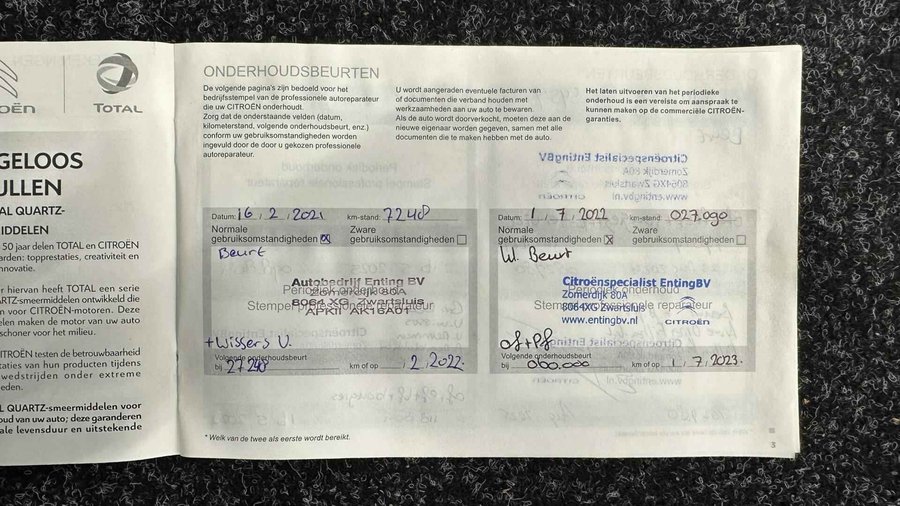 OËN
TOTAL
GELOOS
ULLEN
AL QUARTZ-
MIDDELEN
50 jaar delen TOTAL en CITROËN
arden: topprestaties, creativiteit en
nnovatie.
er hiervan heeft TOTAL een serie
ARTZ-smeermiddelen ontwikkeld die
n voor CITROËN-motoren. Deze
elen maken de motor van uw auto
schoner voor het milieu.
CITROËN testen de betrouwbaarheid
taties van hun producten tijdens
wedstrijden onder extreme
eden.
AL QUARTZ-smeermiddelen voor
oud van uw auto; deze garanderen
ale levensduur en uitstekende
ONDERHOUDSBEURTEN
De volgende pagina's zijn bedoeld voor het
bedrijfsstempel van de professionele autoreparateur
die uw CITROËN onderhoudt.
Zorg dat de onderstaande velden (datum,
kilometerstand, volgende onderhoudsbeurt, enz.)
conform uw gebruiksomstandigheden worden
ingevuld door de door u gekozen professionele
autoreparateur.
U wordt aangeraden eventuele facturen van
of documenten die verband houden met
werkzaamheden aan uw auto te bewaren.
Als de auto wordt doorverkocht, moeten deze aan de
nieuwe eigenaar worden gegeven, samen met alle
documenten die te maken hebben met de auto.
Het laten uitvoeren van het periodieke
onderhoud is een vereiste om aanspraak te
kunnen maken op de commerciële CITROËN-
garanties.
Datum: 16 / 2 / 2021 km-stand: 7248
Normale gebruiksomstandigheden
Zware gebruiksomstandigheden
Beurt
Autobedrijf Enting BV
Periodiek onderhoud
Zomerdijk 80A
8064 XG Zwartsluis
Stempel professionele reparateur
APKII AK16A01
+Wissers V.
Volgende onderhoudsbeurt
bij 27248 km of op / 2 / 2022.
Datum: 1 / 7 / 2022 km-stand: 027.090
Normale gebruiksomstandigheden
Zware gebruiksomstandigheden
W. Beurt
Citroënspecialist EntingBV
Periodiek onderhoud
Zomerdijk 80A
Stempel professionele reparateur
8064XG Zwartsluis
www.entingbv.nl
CITROËN
of+Pf
Volgende onderhoudsbeurt
bij 060.000 km of op 1 / 7 / 2023.
* Welk van de twee als eerste wordt bereikt.
3